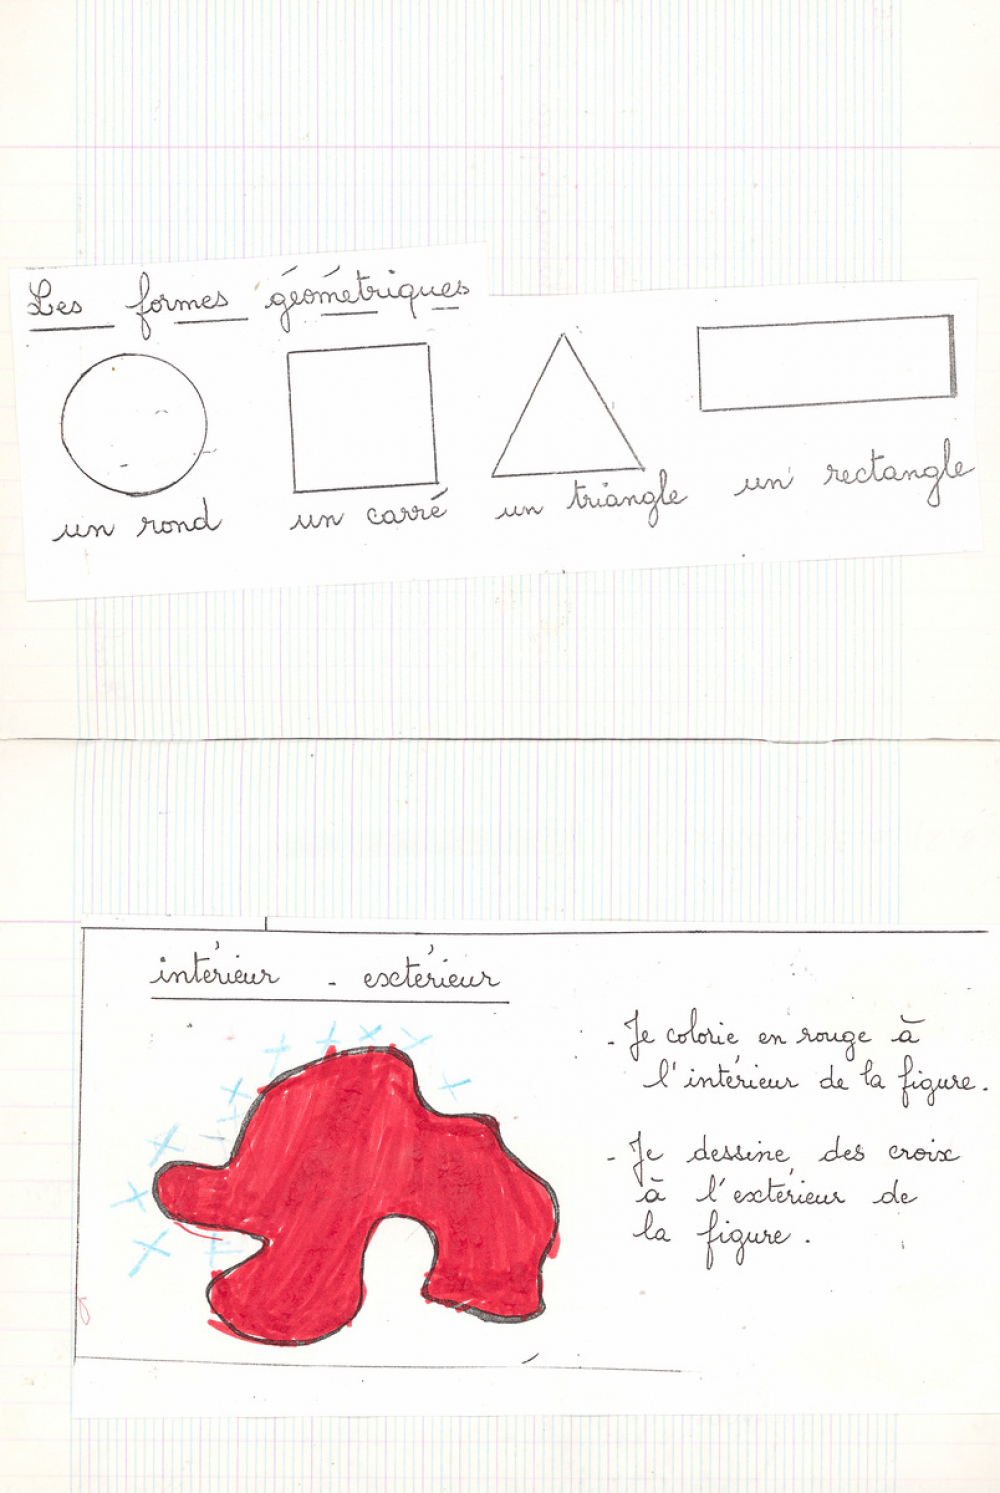 Les formes géométriques
un rond
un carré
un triangle
un rectangle
intérieur - extérieur
- Je colorie en rouge à
l'intérieur de la figure.
- Je dessine des croix
à l'extérieur de
la figure.